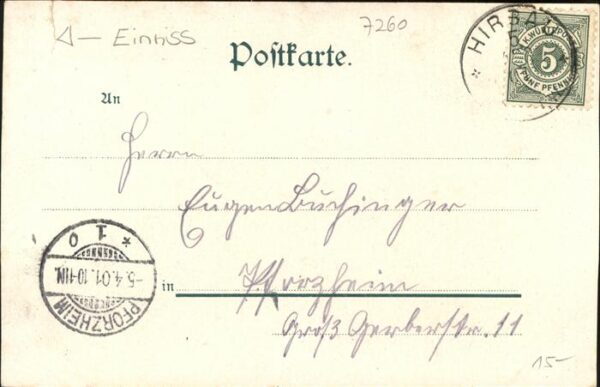 Einriss
7260
Postkarte.
HIRSAU
K.WÜRTT.POST
5
FÜNF PFENNIG
An
Herrn
Eugen Buchinger
* 1 0
-5.4.01.10-11N.
PFORZHEIM
in
Pforzheim
Groß Gerberstr. 11
15-